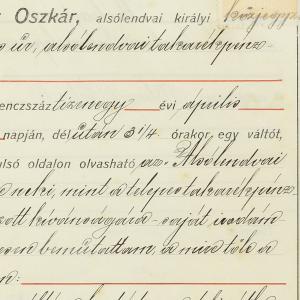 r Oszkár, alsólendvai királyi közjegyz
úr, alsólendvai takarékpénz-
enczszáz tizenegy évi április
napján, dél után 3 1/4 órakor egy váltót,
ulsó oldalon olvasható, az Alsólendvai
neki, mint a telepes takarékpénz-
ott kívánságára saját irodám-
bemutattam, a mire tőle a
n: